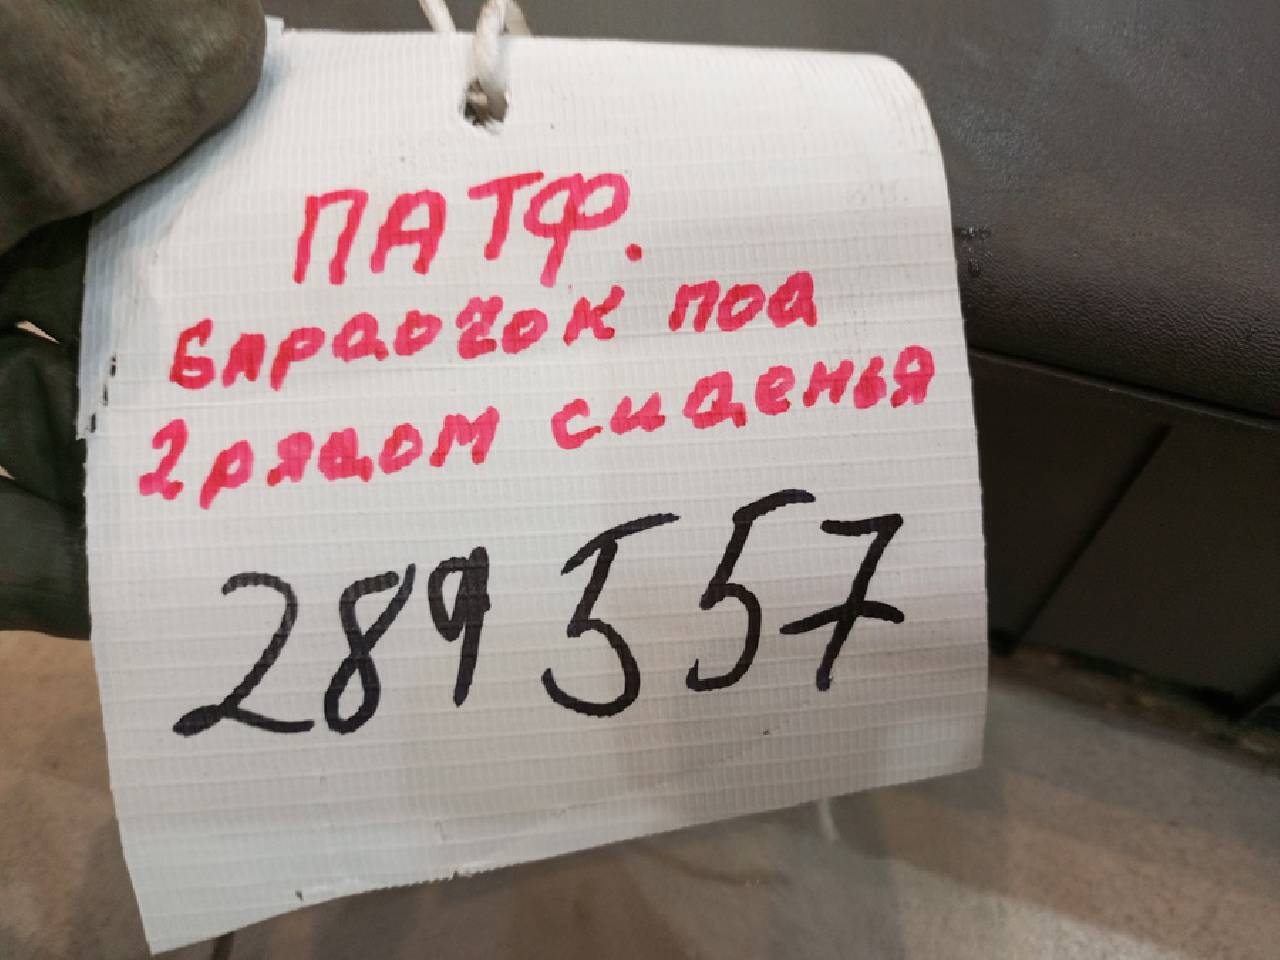 ПАТФ.
бардочок под
2 рядом сиденья
289557